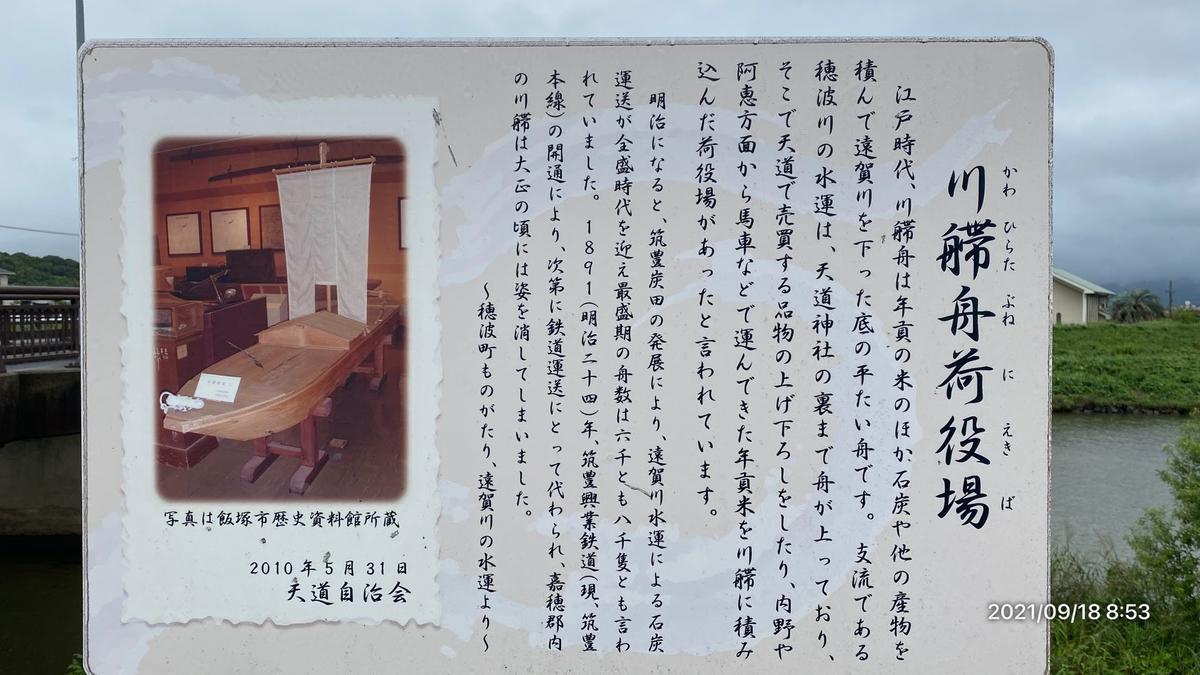 川艜舟荷役場
かわ ひらた ぶね に えき ば
江戸時代、川艜舟は年貢の米のほか石炭や他の産物を
積んで遠賀川を下った底の平たい舟です。 支流である
穂波川の水運は、天道神社の裏まで舟が上っており、
そこで天道で売買する品物の上げ下ろしをしたり、内野や
阿恵方面から馬車などで運んできた年貢米を川艜に積み
込んだ荷役場があったと言われています。
明治になると、筑豊炭田の発展により、遠賀川水運による石炭
運送が全盛時代を迎え最盛期の舟数は六千とも八千隻とも言わ
れていました。 1891(明治二十四)年、筑豊興業鉄道(現、筑豊
本線)の開通により、次第に鉄道運送にとって代わられ、嘉穂郡内
の川艜は大正の頃には姿を消してしまいました。
～穂波町ものがたり、遠賀川の水運より～
写真は飯塚市歴史資料館所蔵
2010年5月31日
天道自治会
2021/09/18 8:53